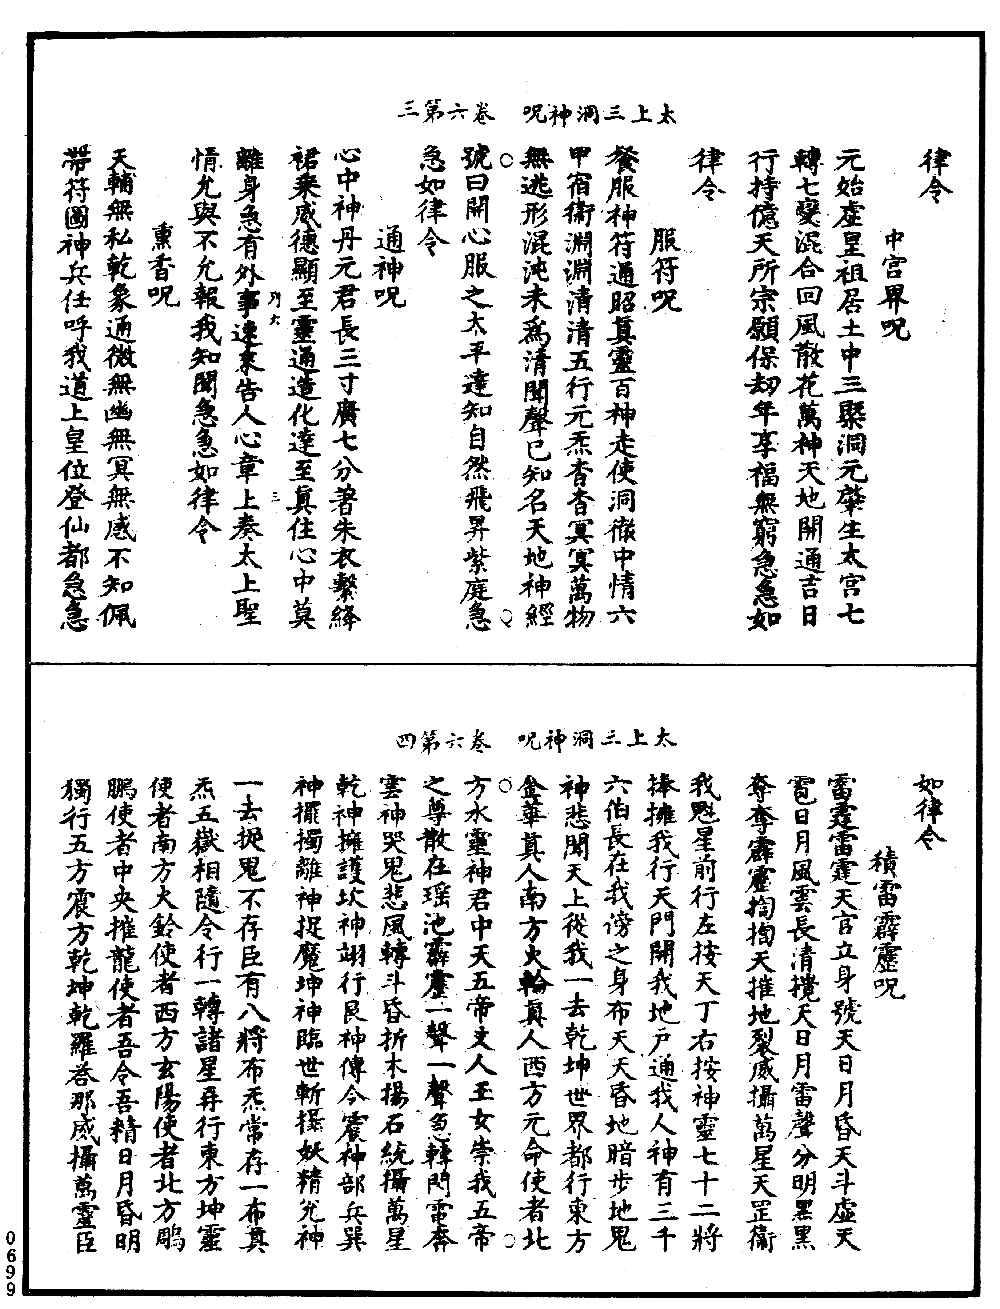 太上三洞神呪　卷六第三
律令
中宫界呪
元始虛皇祖居土中三聚洞元肇生太宫七
轉七變混合回風散花萬神天地開通吉日
行持億天所宗願保劫年享福無窮急急如
律令
服符呪
餐服神符通昭真靈百神走使洞徹中情六
甲宿衛淵淵清清五行元炁杳杳冥冥萬物
無逃形混沌未爲清聞聲已知名天地神經
號曰開心服之太平達知自然飛昇紫庭急
急如律令
通神呪
心中神丹元君長三寸廣七分著朱衣繫絳
裙乘威德顯至靈通造化達至真住心中莫
離身急有外事速來告人心章上奏太上聖
情允與不允報我知聞急急如律令
熏香呪
天輔無私乾象通微無幽無冥無感不知佩
帶符圖神兵任呼我道上皇位登仙都急急
太上三洞神呪　卷六第四
如律令
積雷霹靂呪
雷霆雷霆天官立身號天日月昏天斗虛天
雹日月風雲長清攪天日月雷聲分明黑黑
奪奪霹靂掏掏天摧地裂威攝萬星天罡衛
我魁星前行左按天丁右按神靈七十二將
捧擁我行天門開我地戶通我人神有三千
六伯長在我傍之身布天天昏地暗步地鬼
神悲聞天上從我一去乾坤世界都行東方
金華真人南方火輪真人西方元命使者北
方水靈神君中天五帝丈人玉女崇我五帝
之尊散在瑶池霹靂一聲一聲急轉門雷奔
雲神哭鬼悲風轉斗昏折木揚石統攝萬星
乾神擁護坎神翊行艮神傳令震神部兵巽
神擺撝離神捉魔坤神臨世斬摄妖精兌神
一去捉鬼不存臣有八將布炁常存一布真
炁五嶽相隨令行一轉諸星再行東方坤靈
使者南方火鈴使者西方玄陽使者北方鵰
鵬使者中央摧龍使者吾令吾精日月昏明
獨行五方震方乾坤乾羅荅那威攝萬靈臣
0699